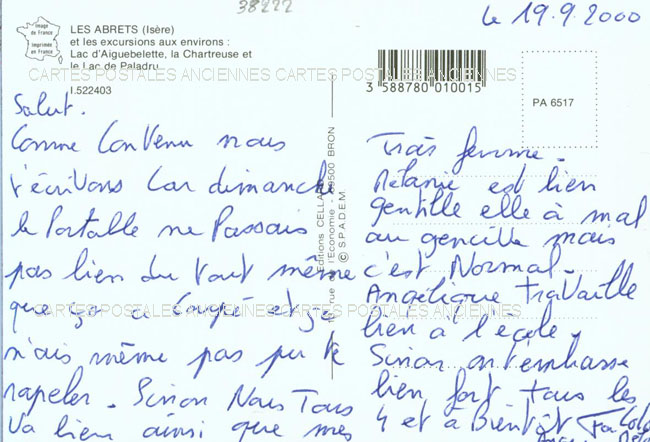 38222
le 19.9.2000
Image de France
Imprimée en France
LES ABRETS (Isère)
et les excursions aux environs :
Lac d'Aiguebelette, la Chartreuse et
le Lac de Paladru
I.522403
CARTES POSTALES ANCIENNES CARTES POSTALES ANCIENNES
3 588780 010015
PA 6517
Editions CELLARD rue de l'Economie - 69500 BRON
© S.P.A.D.E.M.
Salut.
Comme Convenu nous
t'écrivons Car dimanche
le Portable ne Passais
pas bien du tout même
que ça a Coupé et je
n'ais même pas pu te
rapeler. Sinon Nous Tous
Va bien ainsi que mes
Trois femme.
Mélanie est bien
gentille elle à mal
au gencille mais
c'est Normal.
Angélique travaille
bien à l'école.
Sinon on t'embrasse
bien fort tous les
4 et à Bientôt
CARTES POSTALES ANCIENNES CARTES POSTALES ANCIENNES